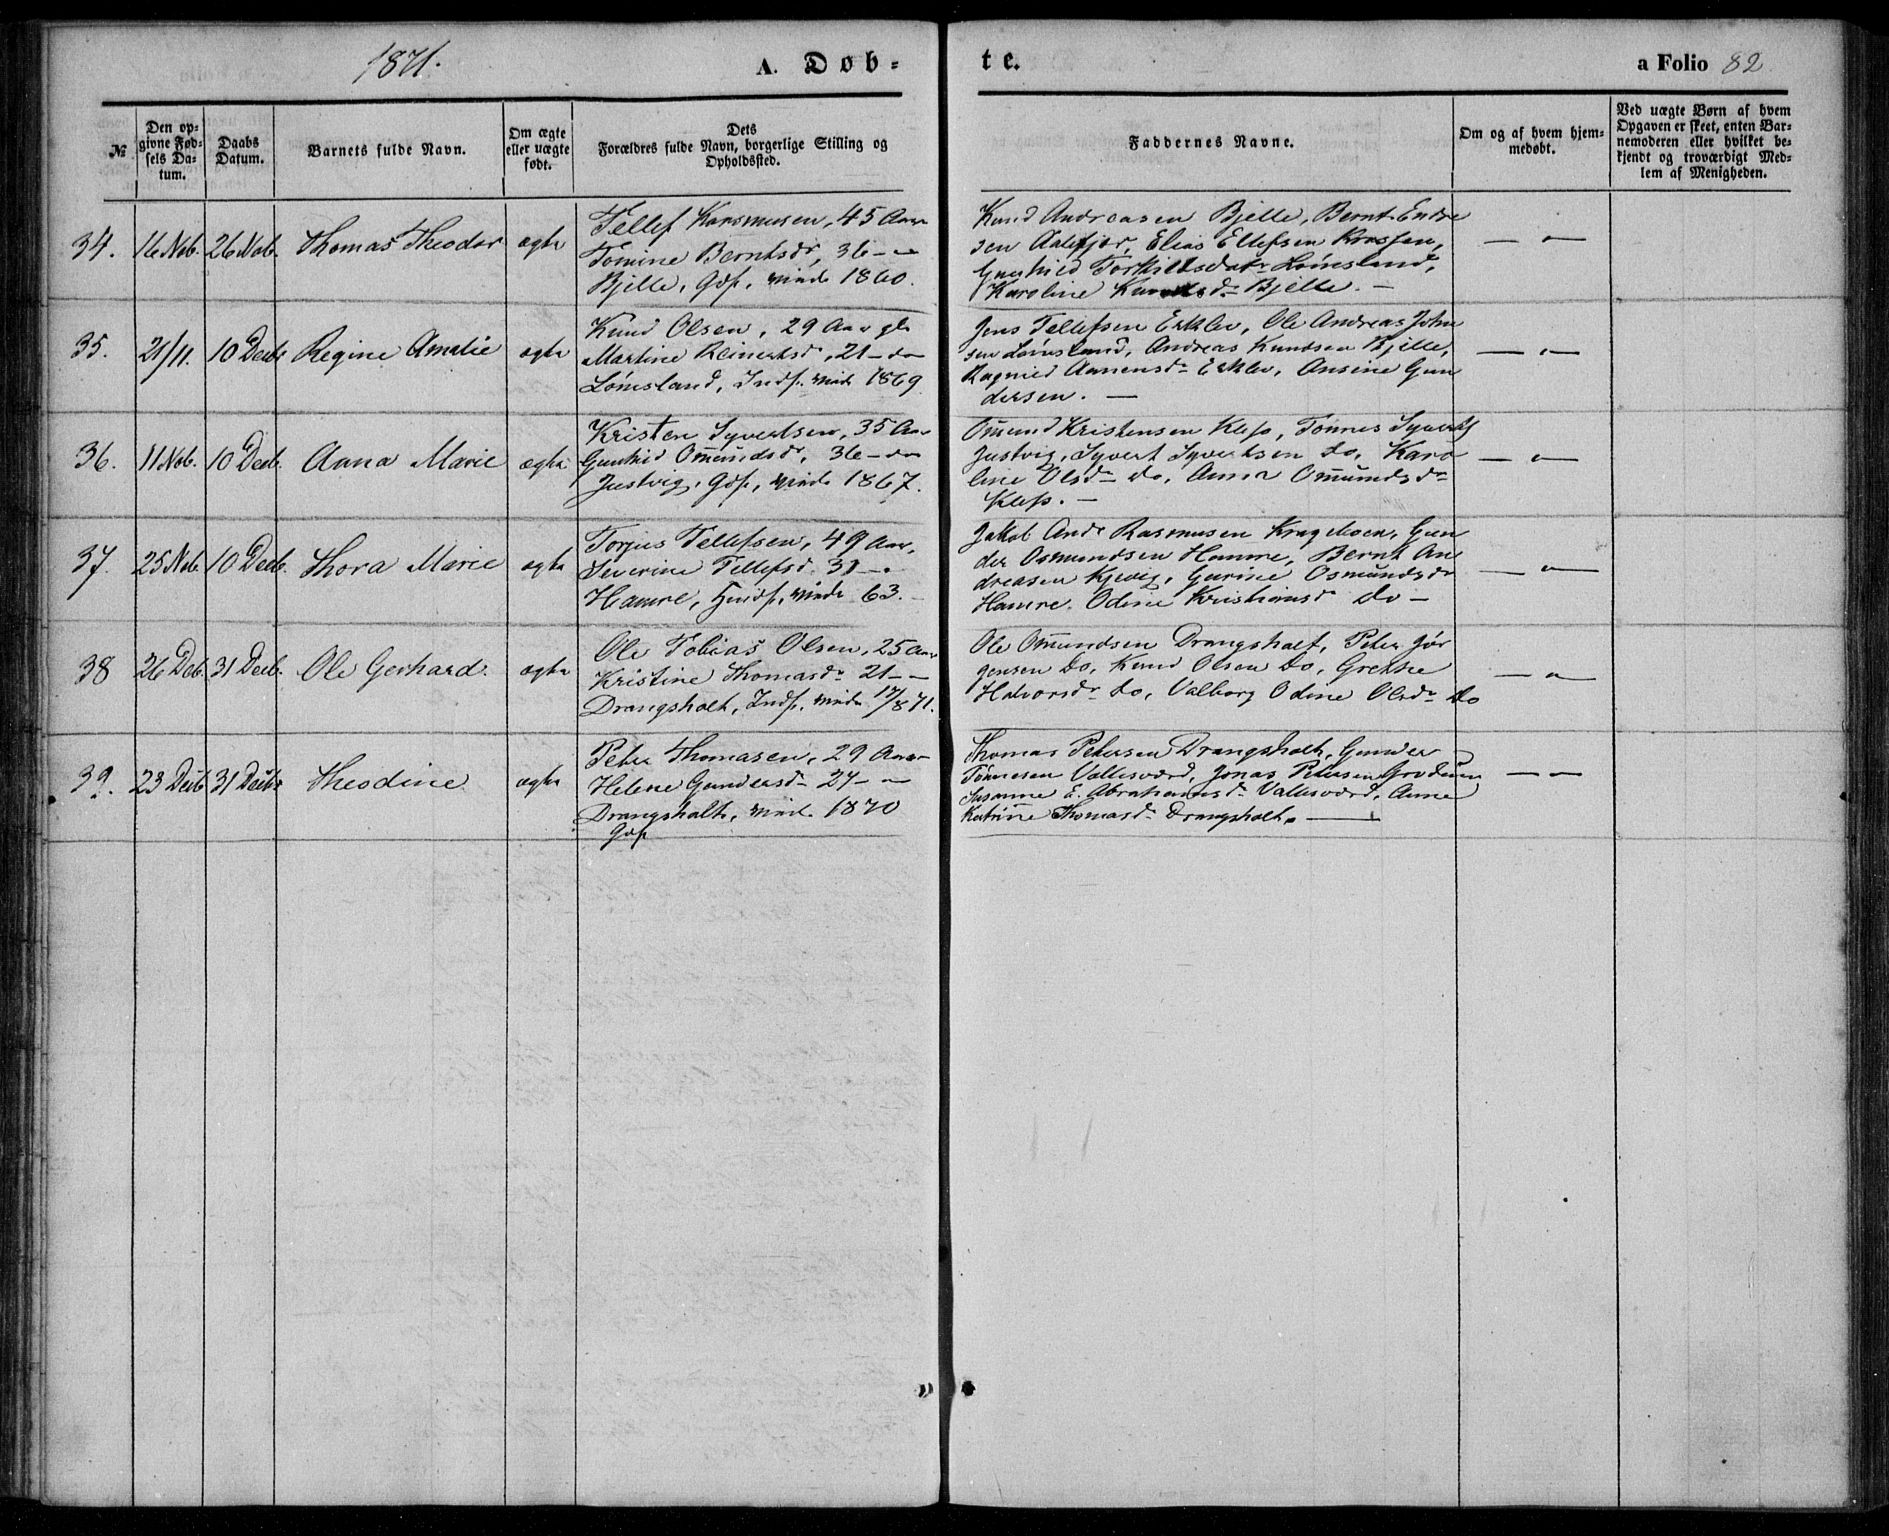 1871.
A. Døb=
te.
a Folio 82
№
Den op=
givne Fød=
sels Da=
tum.
Daabs
Datum.
Barnets fulde Navn.
Om ægte
eller uægte
født.
Dets
Forældres fulde Navn, borgerlige Stilling og
Opholdssted.
Faddernes Navne.
Om og af hvem hjem=
medøbt.
Ved uægte Børn af hvem
Opgaven er skeet, enten Bar=
nemoderen eller hvilket be=
kjendt og troværdigt Med=
lem af Menigheden.
34. 16 Nob. 26 Nob. Thomas Theodor ægte
Tellef Rasmusen, 45 Aar
Tomine Berntsdr, 36 — "
Bjelle, Gdf. vinde 1860.
Knud Andreasen Bjelle, Bernt Endre
sen Aalefjær, Elias Ellefsen
Gunhild Torkildsdatr Lømsland,
Karoline dr Bjelle. —
— " —
35. 21/11. 10 Decb Regine Amalie ægte
Knud Olsen, 29 Aar gl
Martine Reinertsdr, 21 — do
Lømsland, Indf. vinde 1869
Jens Tellefsen Erklev, Ole Andreas John
sen Lømsland, Andreas Knudsen Bjelle,
Ragnild Aanensdr Erklev, Ansine Gun
dersen. —
— " —
36. 11 Nob. 10 Decb. Anna Marie ægte
Kristen Syvertsen, 35 Aar
Gunhild Omundsdr, 36 — do
Justvig, Gdf, vinde 1867.
Omund Kristensen Kleps, Tønnes Syverts
Justvig, Syvert Syvertsen do, Karo
line Olsdr do, Anna Omundsdr
Kleps. —
— " —
37. 25 Nob. 10 Decb. Thora Marie ægte
Torjus Tellefsen, 49 Aar,
Severine Tellefsd. 31 — "
Hamre, vinde 63. —
Jakob Andr Rasmusen Krageboen, Gun
der Osmundsen Hamre, Bernt An
dreasen Kjevig, Gurine Osmundsdr
Hamre. Odine Kristiansdr do —
— " —
38 26 Deb. 31 Decb. Ole Gerhard. ægte
Ole Tobias Olsen, 25 Aar
Kristine Thomasdr 21 — "
Drangsholt, Indf. vinde 17/8 71.
Ole Omundsen Drangsholt, Peter Jør
gensen do, Knud Olsen do, Grethe
Halvorsdr do, Valborg Odine Olsdr do
— " —
39. 23 Decb 31 Decb Theodine ægte
Peter Thomasen, 29 Aar
Helene Gundersdr 24 — "
Drangsholt, vind. 1870
Gdf
Thomas Petersen Drangsholt, Gunder
Tønnesen Vallesværd, Jonas Petersen
Susanne E. Abrahamsdr Vallesværd, Anne
Katrine Thomasdr Drangsholt. —
— " —